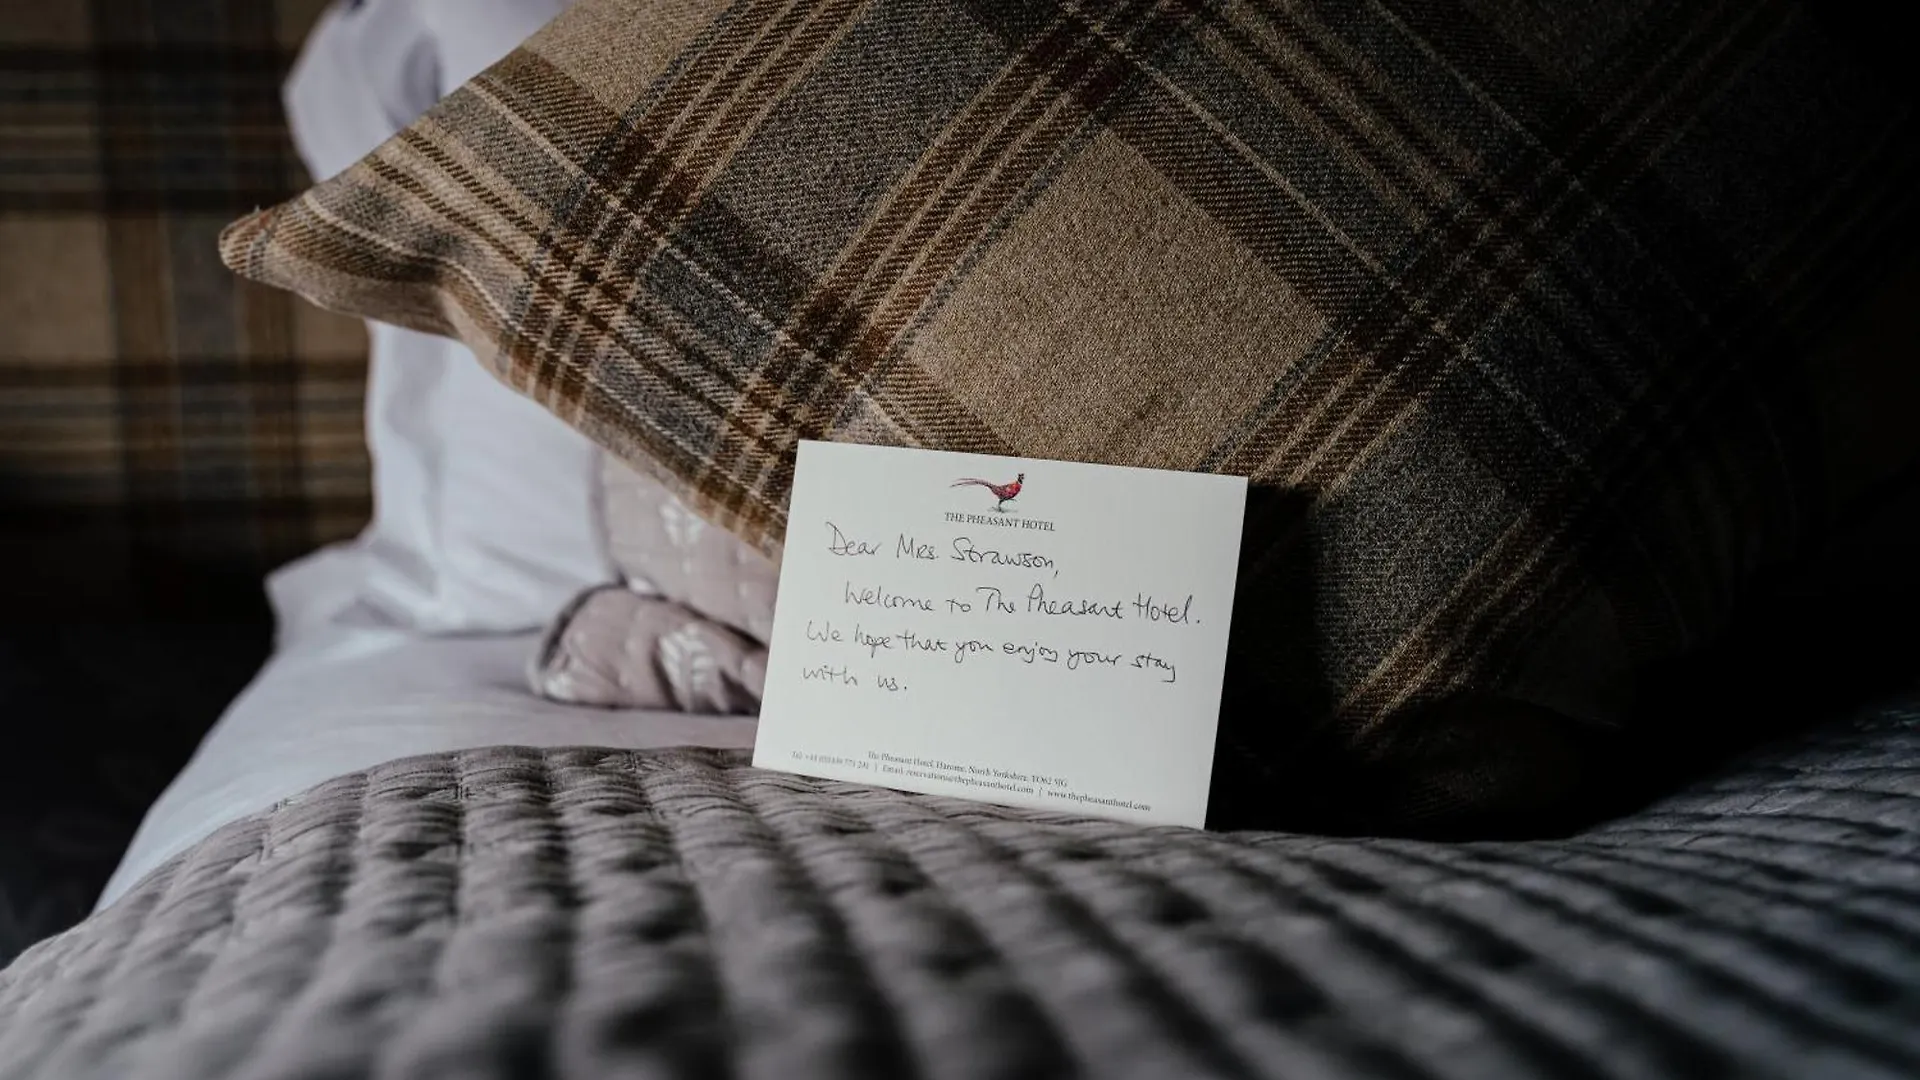 THE PHEASANT HOTEL
Dear Mrs. Strawson,
Welcome to The Pheasant Hotel.
We hope that you enjoy your stay
with us.
The Pheasant Hotel, Harome, North Yorkshire, YO62 5JG
Tel: +44 (0)1439 771 241 | Email: reservations@thepheasanthotel.com | www.thepheasanthotel.com